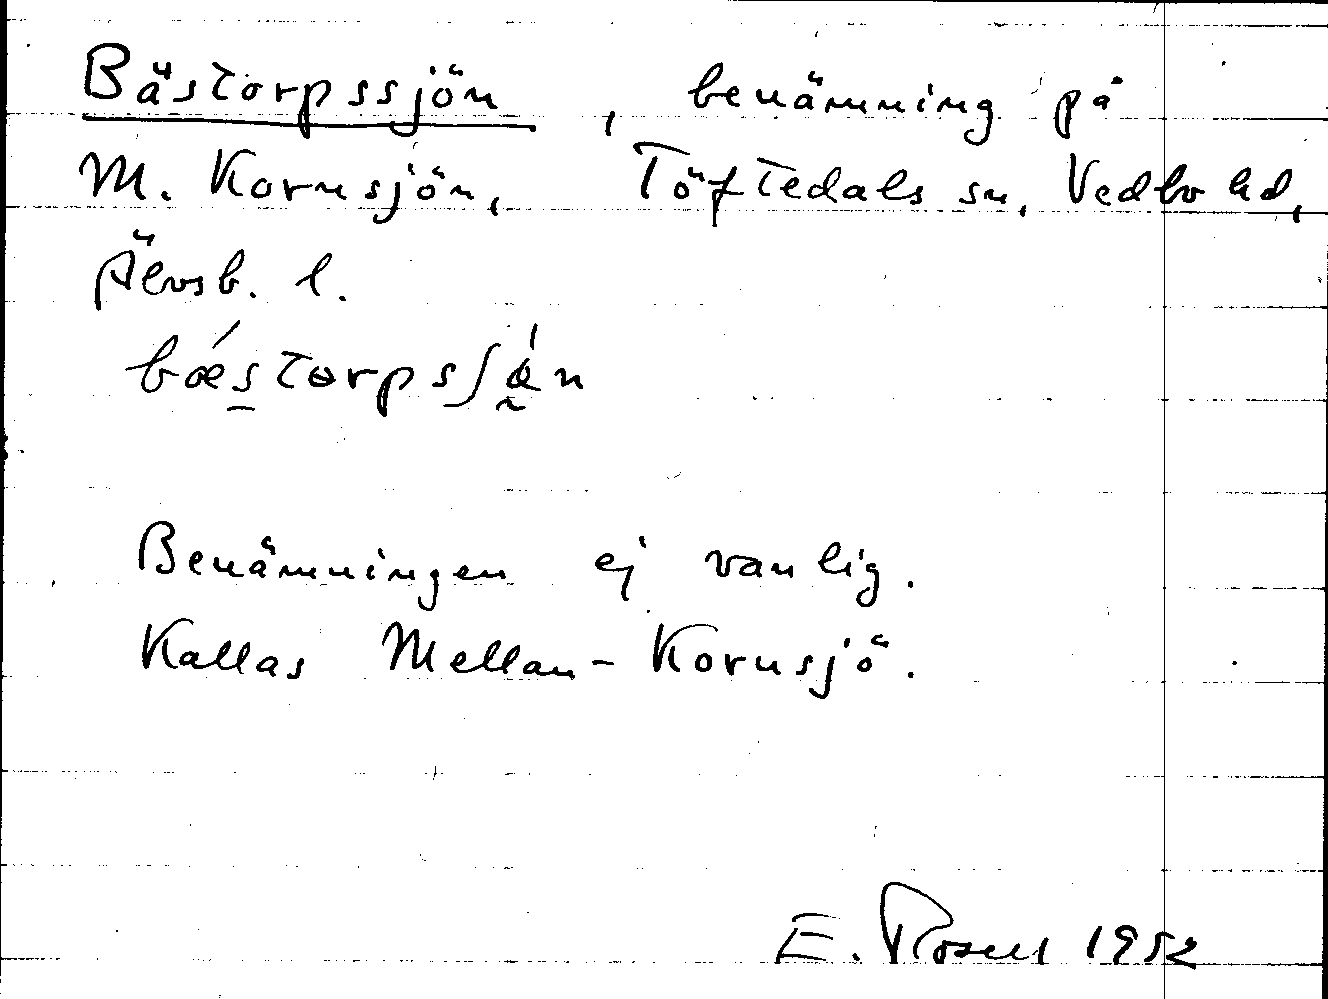 Bästorpssjön, benämning på
M. Kornsjön, Töftedals sn, Vedbo hd,
Älvsb. l.
bǽs̲tɵrpsʃǿ̰n
Benämningen ej vanlig.
Kallas Mellan-Kornsjö.
E. Rosell 1952